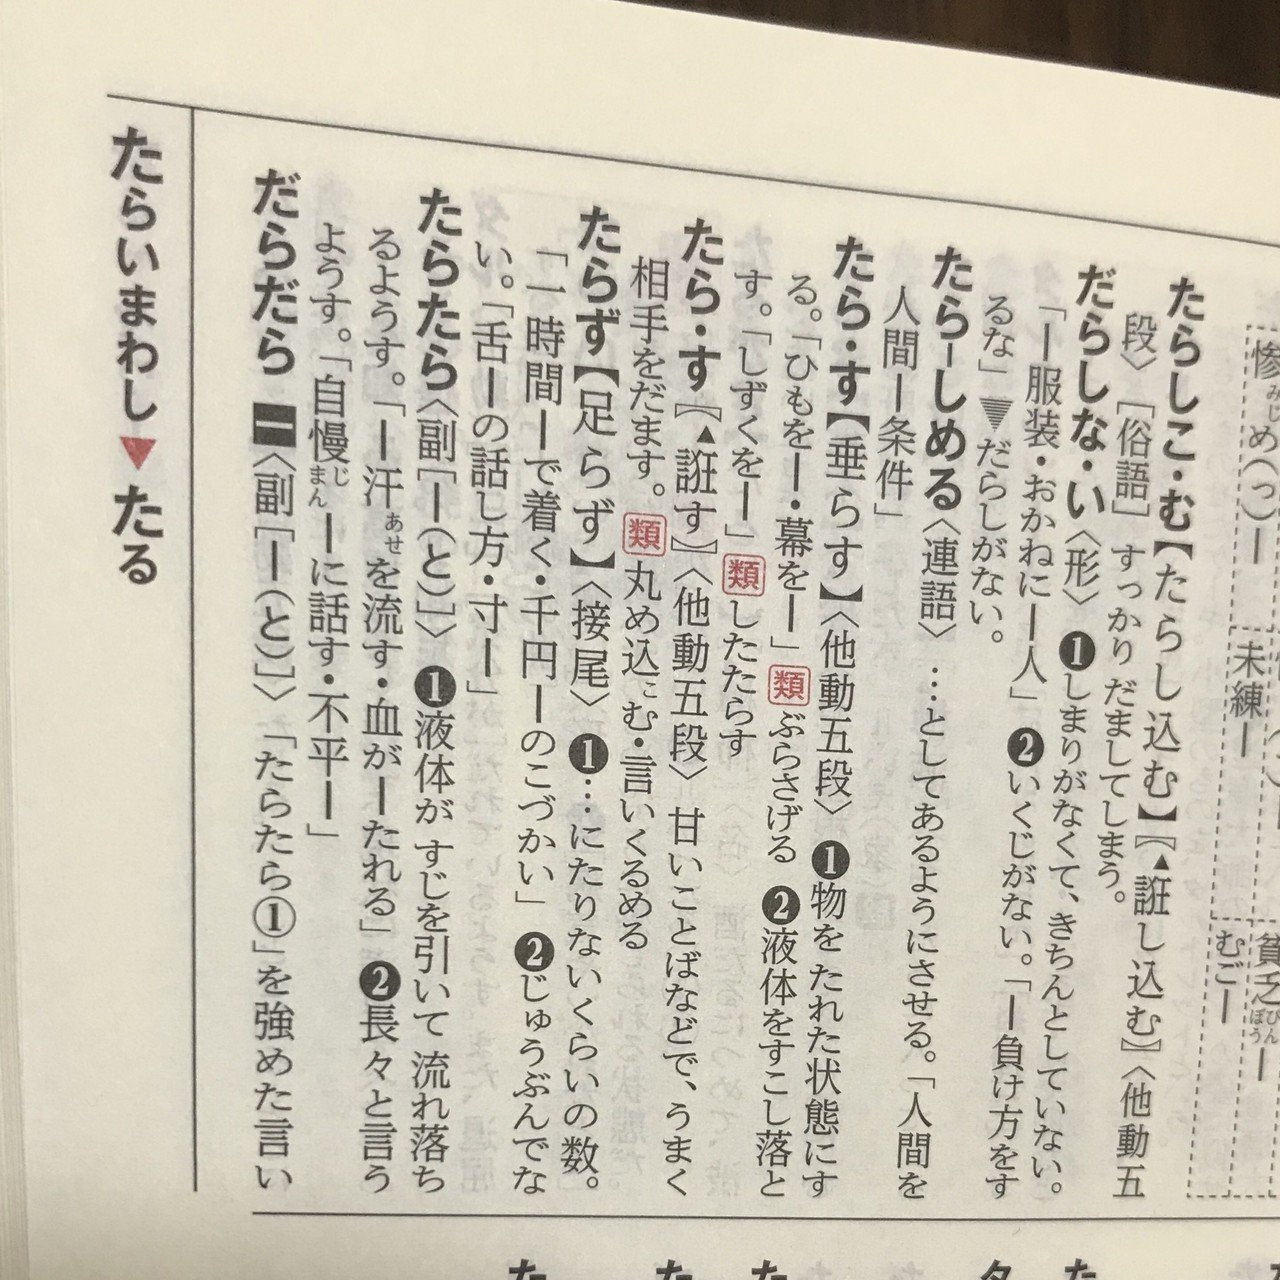 惨め（っ）ー
みじ
未練ー
貧乏ー
びんぼう
むごー
たらしこ・む【たらし込む】〖▲誑し込む〗〈他動五
段〉［俗語］すっかりだましてしまう。
だらしな・い〈形〉❶しまりがなくて、きちんとしていない。
「ー服装・おかねにー人」❷いくじがない。「ー負け方をす
るな」▼だらしがない。
たらーしめる〈連語〉…としてあるようにさせる。「人間を
人間ー条件」
たら・す【垂らす】〈他動五段〉❶物をたれた状態にす
る。「ひもをー・幕をー」類ぶらさげる❷液体をすこし落と
す。「しずくをー」類したたらす
たら・す〖▲誑す〗〈他動五段〉甘いことばなどで、うまく
相手をだます。類丸め込む・言いくるめる
こ
たらず【足らず】〈接尾〉❶…にたりないくらいの数。
「一時間ーで着く・千円ーのこづかい」❷じゅうぶんでな
い。「舌ーの話し方・寸ー」
たらたら〈副［ー（と）］〉❶液体がすじを引いて流れ落ち
るようす。「ー汗を流す・血がーたれる」❷長々と言う
あせ
ようす。「自慢ーに話す・不平ー」
じまん
だらだら 一〈副［ー（と）］〉「たらたら①」を強めた言い
たらいまわし▼たる
た
た
た
タ
た